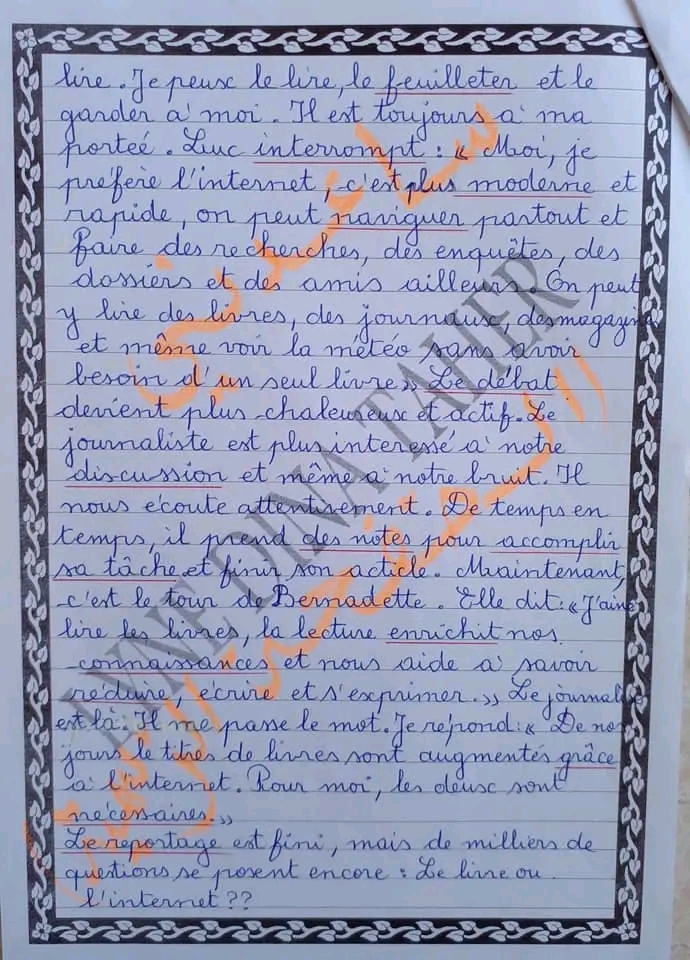 lire. Je peux le lire, le feuilleter et le
garder à moi. Il est toujours à ma
porteé. Luc interrompt : « Moi, je
préfère l'internet, c'est plus moderne et
rapide, on peut naviguer partout et
faire des recherches, des enquêtes, des
dossiers et des amis ailleurs. On peut
y lire des livres, des journaux, des magazines
et même voir la météo sans avoir
besoin d'un seul livre» Le débat
devient plus chaleureux et actif. Le
journaliste est plus interessé à notre
discussion et même à notre bruit. Il
nous écoute attentivement. De temps en
temps, il prend des notes pour accomplir
sa tâche et finir son article. Maintenant,
c'est le tour de Bernadette. Elle dit : « J'aime
lire les livres, la lecture enrichit nos
connaissances et nous aide à savoir
réduire, écrire et s'exprimer.» Le journaliste
est là. Il me passe le mot. Je répond : « De nos
jours le titres de livres sont augmentés grâce
à l'internet. Pour moi, les deux sont
nécessaires.»
Le reportage est fini, mais de milliers de
questions se posent encore : Le livre ou
l'internet ??
LYNE DINA TAHER
ساعدني